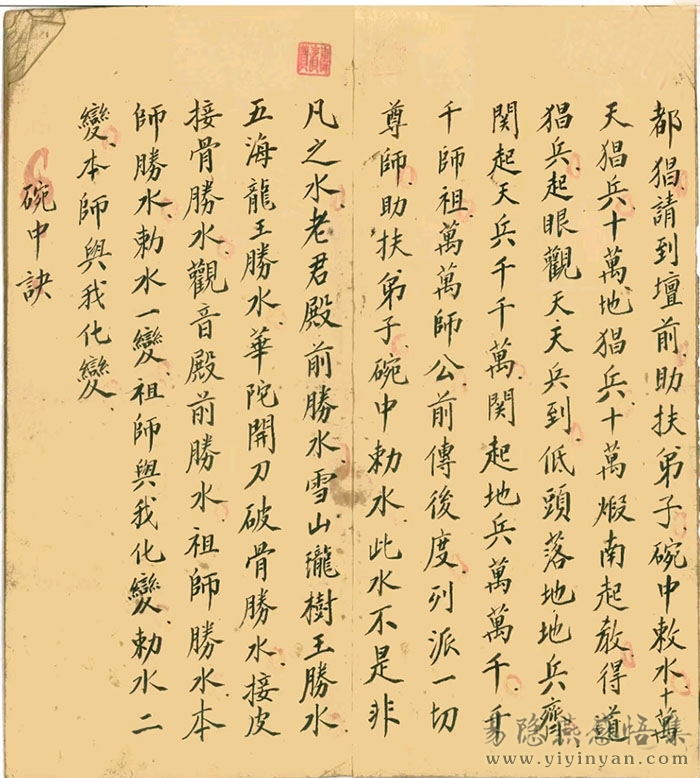 都猖請到壇前助扶弟子碗中敕水十萬
天猖兵十萬地猖兵十萬煅南起教得道
猖兵起眼觀天天兵到低頭落地地兵齊
関起天兵千千萬関起地兵萬萬千千
千師祖萬萬師公前傳後度列派一切
尊師助扶弟子碗中勅水此水不是非
凡之水老君殿前勝水雪山瓏樹王勝水
五海龍王勝水華陀開刀破骨勝水接皮
接骨勝水觀音殿前勝水祖師勝水本
師勝水勅水一變祖師與我化變勅水二
變本師與我化變
碗中訣
易隐燕感悟集
www.yiyinyan.com